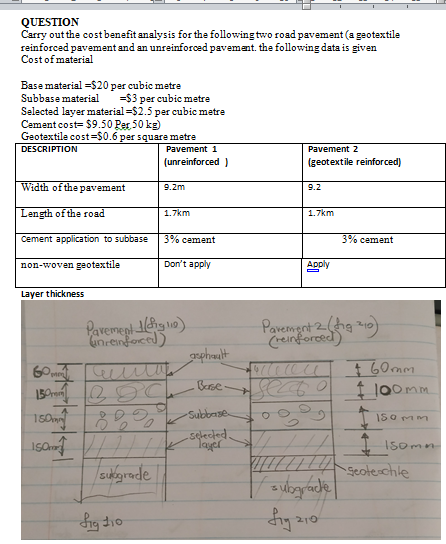 QUESTION
Carry out the cost benefit analysis for the following two road pavement (a geotextile
reinforced pavement and an unreinforced pavement. the following data is given
Cost of material
Base material =$20 per cubic metre
Subbase material =$3 per cubic metre
Selected layer material =$2.5 per cubic metre
Cement cost= $9.50 Per 50 kg)
Geotextile cost =$0.6 per square metre
DESCRIPTION Pavement 1 (unreinforced ) Pavement 2 (geotextile reinforced)
Width of the pavement 9.2m 9.2
Length of the road 1.7km 1.7km
Cement application to subbase 3% cement 3% cement
non-woven geotextile Don't apply Apply
Layer thickness
Pavement 1(fig 1.0)
(unreinforced)
Pavement 2 (fig 2.0)
(reinforced)
asphault
60mm
60mm
150mm
Base
100mm
150mm
Subbase
150mm
150mm
selected
layer
150mm
subgrade
geotextile
subgrade
fig 1.0
fig 2.0